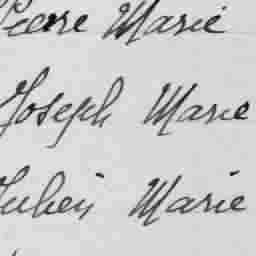 Pierre Marie
Joseph Marie
Julien Marie